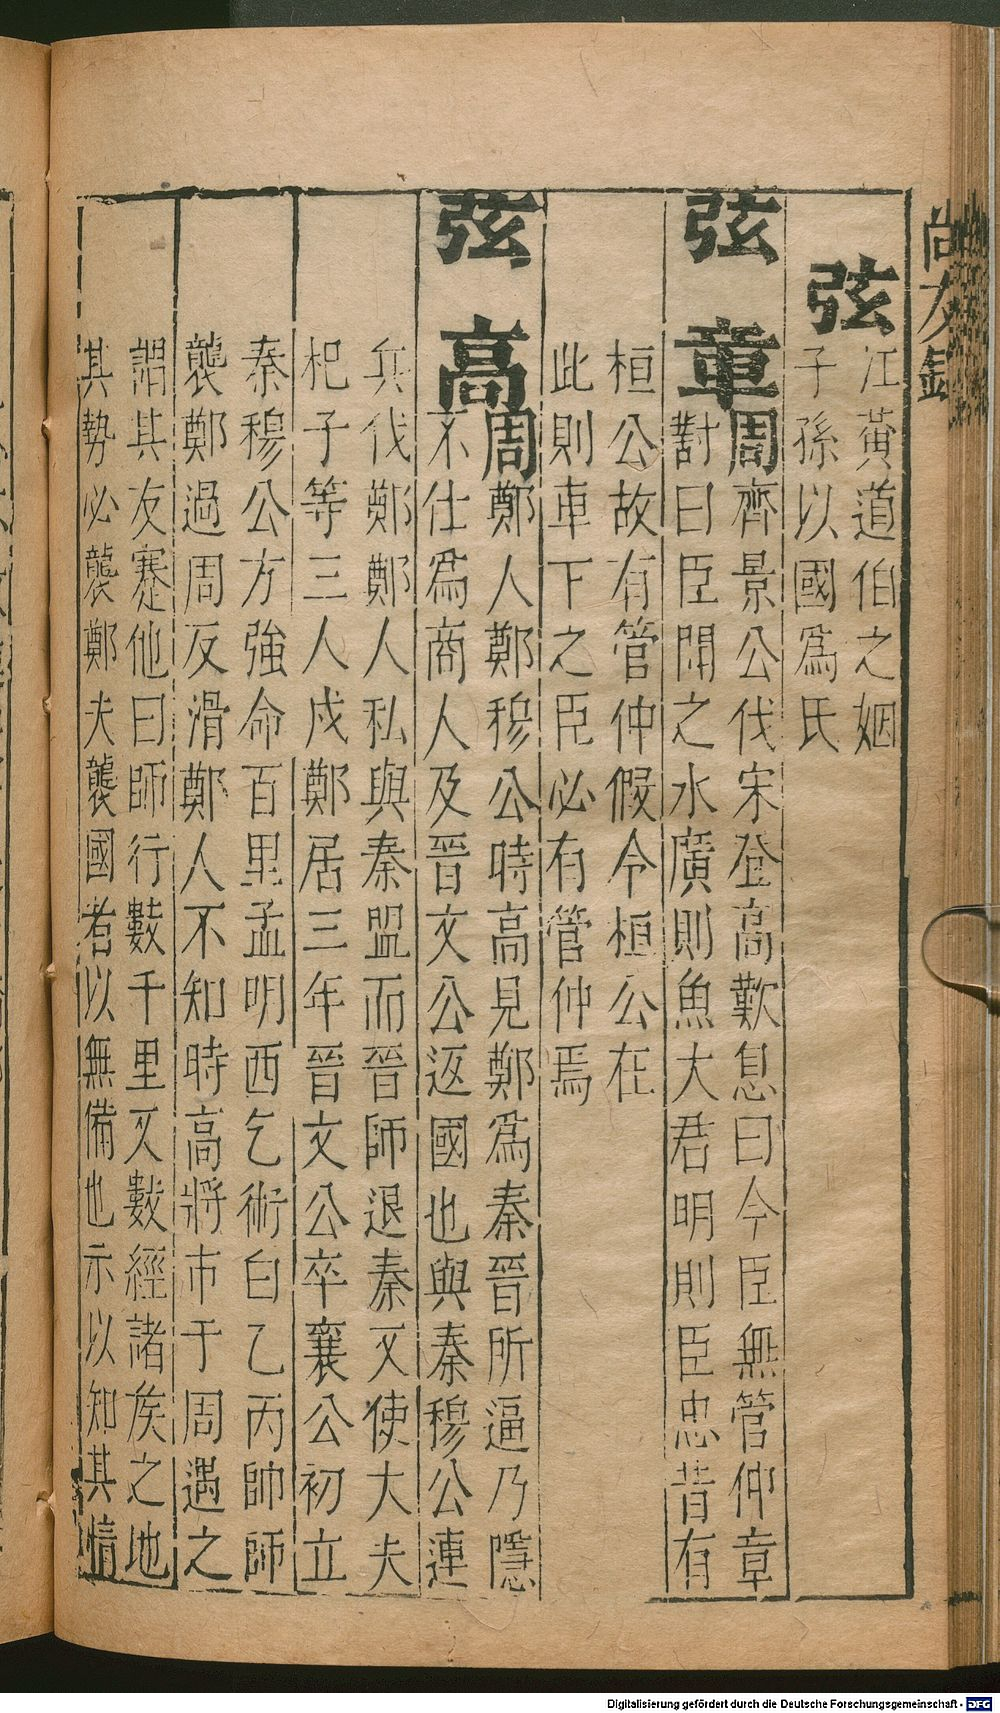 尚友錄
弦
江黃道伯之姻
子孫以國爲氏
弦章
周齊景公伐宋登高歎息曰今臣無管仲章
對曰臣聞之水廣則魚大君明則臣忠昔有
桓公故有管仲假令桓公在
此則車下之臣必有管仲焉
弦高
周鄭人鄭穆公時高見鄭爲秦晉所逼乃隱
不仕爲商人及晉文公返國也與秦穆公連
兵伐鄭鄭人私與秦盟而晉師退秦又使大夫
杞子等三人戍鄭居三年晉文公卒襄公初立
秦穆公方強命百里孟明西乞術白乙丙帥師
襲鄭過周反滑鄭人不知時高將市于周遇之
謂其友蹇他曰師行數千里又數經諸矦之地
其勢必襲鄭夫襲國者以無備也示以知其情
Digitalisierung gefördert durch die Deutsche Forschungsgemeinschaft - DFG